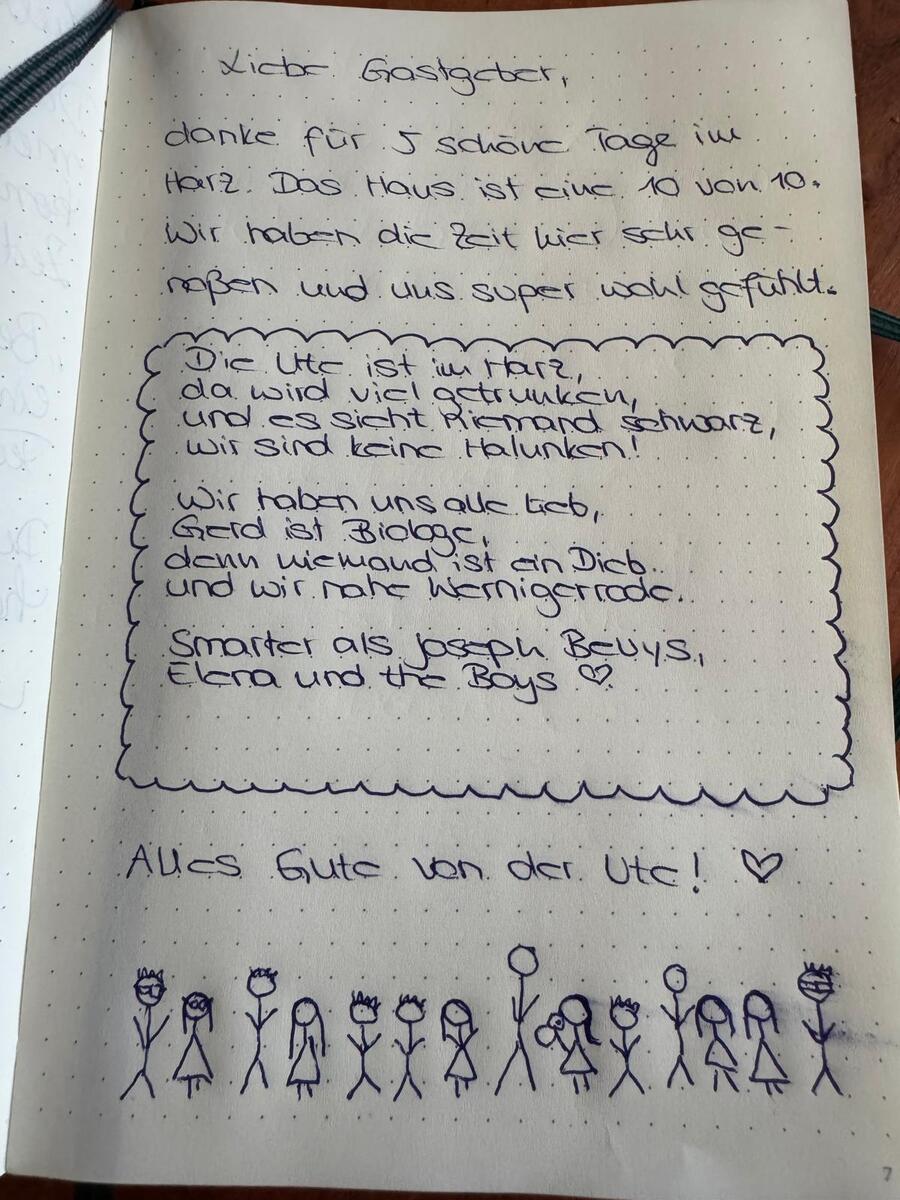 Liebe Gastgeber,
danke für 5 schöne Tage im
Harz. Das Haus ist eine 10 von 10.
Wir haben die Zeit hier sehr ge-
noßen und uns super wohl gefühlt.
Die Ute ist im Harz,
da wird viel getrunken,
und es sieht Niemand schwarz,
wir sind keine Halunken!
Wir haben uns alle lieb,
Gerd ist Biologe,
denn niemand ist ein Dieb.
und wir nahe Wernigerrode.
Smarter als Joseph Beuys,
Elena und the Boys ♡
Alles Gute von der Ute! ♡
7